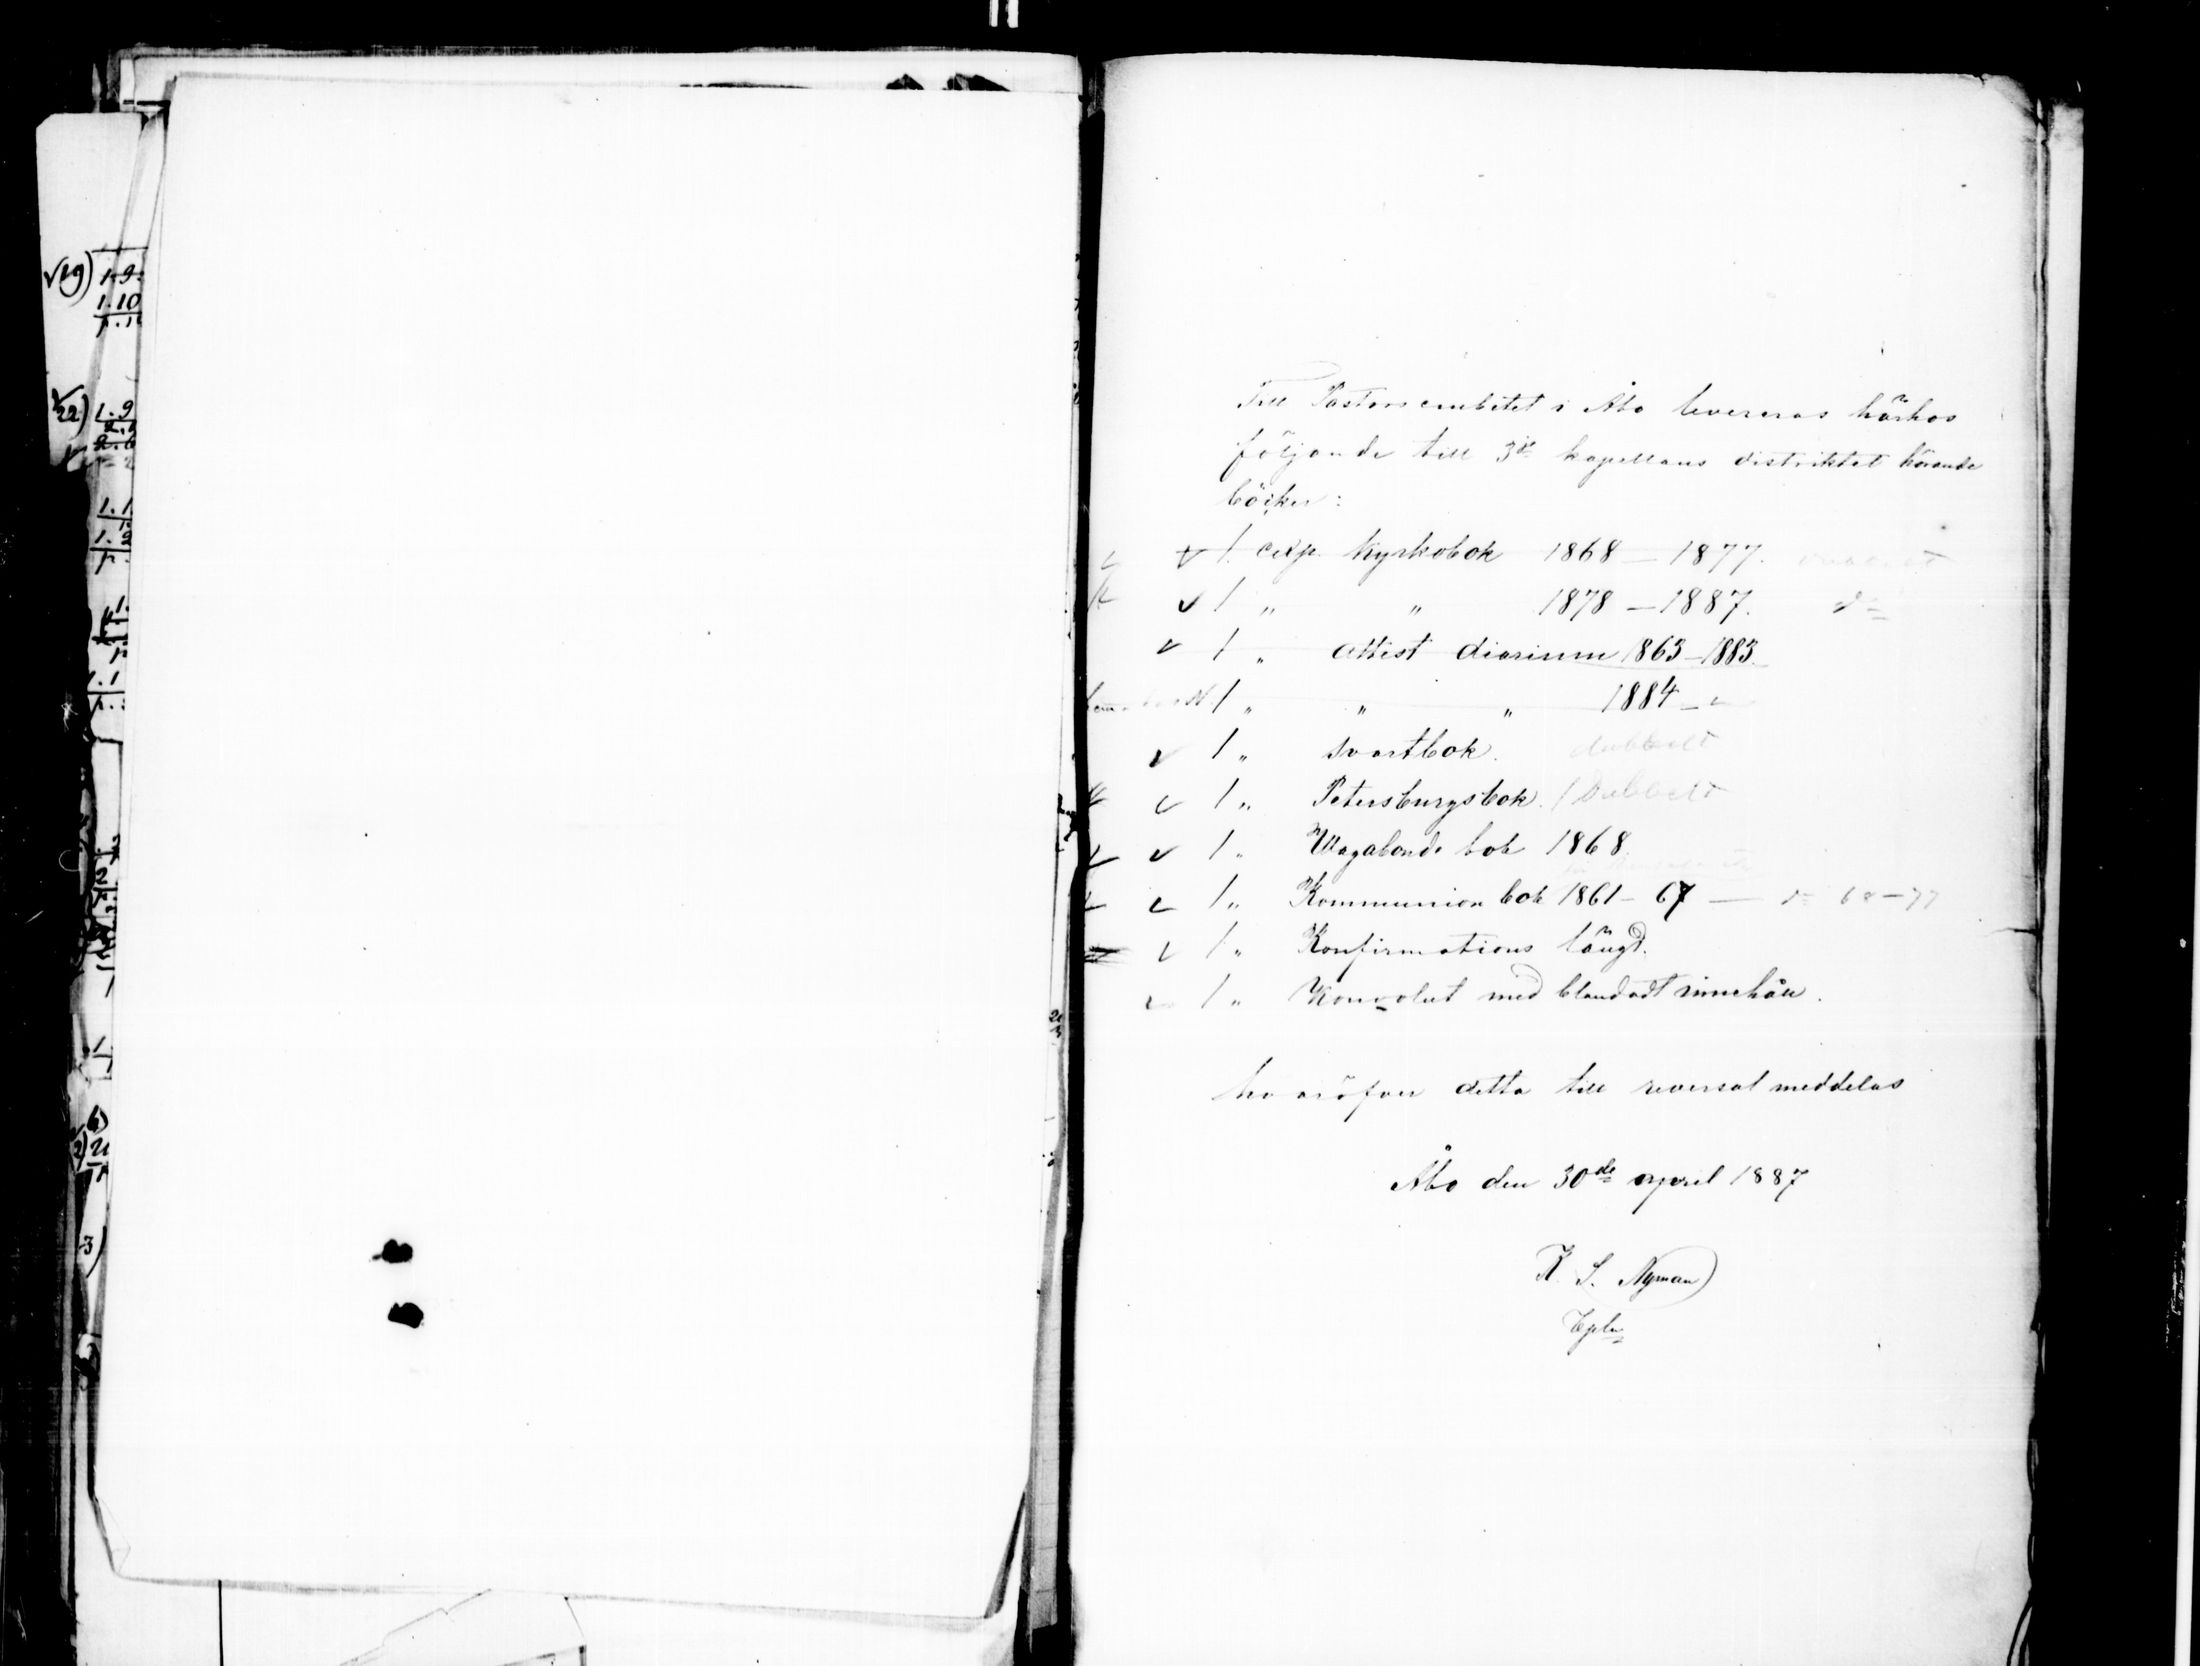 √19) 1.9.
1.10
√22) 1.9
Till Pastorsembetet i Åbo levereras härhos
följande till 3dje kapellans distriktet hörande
böcker:
√ √ 1. exp. Kyrkobok 1868 — 1877. dubbelt
√ √ 1 „ „ 1878 — 1887. do
√ 1 „ attest diarium 1863 – 1883.
1 „ „ „ 1884 –
√ 1 „ Svartbok. dubbelt
√ 1 „ Petersburgsbok. / Dubbelt
√ √ 1 „ Vagabonds bok 1868.
√ √ 1 „ Kommunion bok 1861 – 67 — do 68 – 77
√ 1 „ Konfirmations längd.
√ 1 „ Konvolut med blandadt innehåll.
hvaröfver detta till reversal meddelas
Åbo den 30de april 1887
K. S. Nyman
Cpln